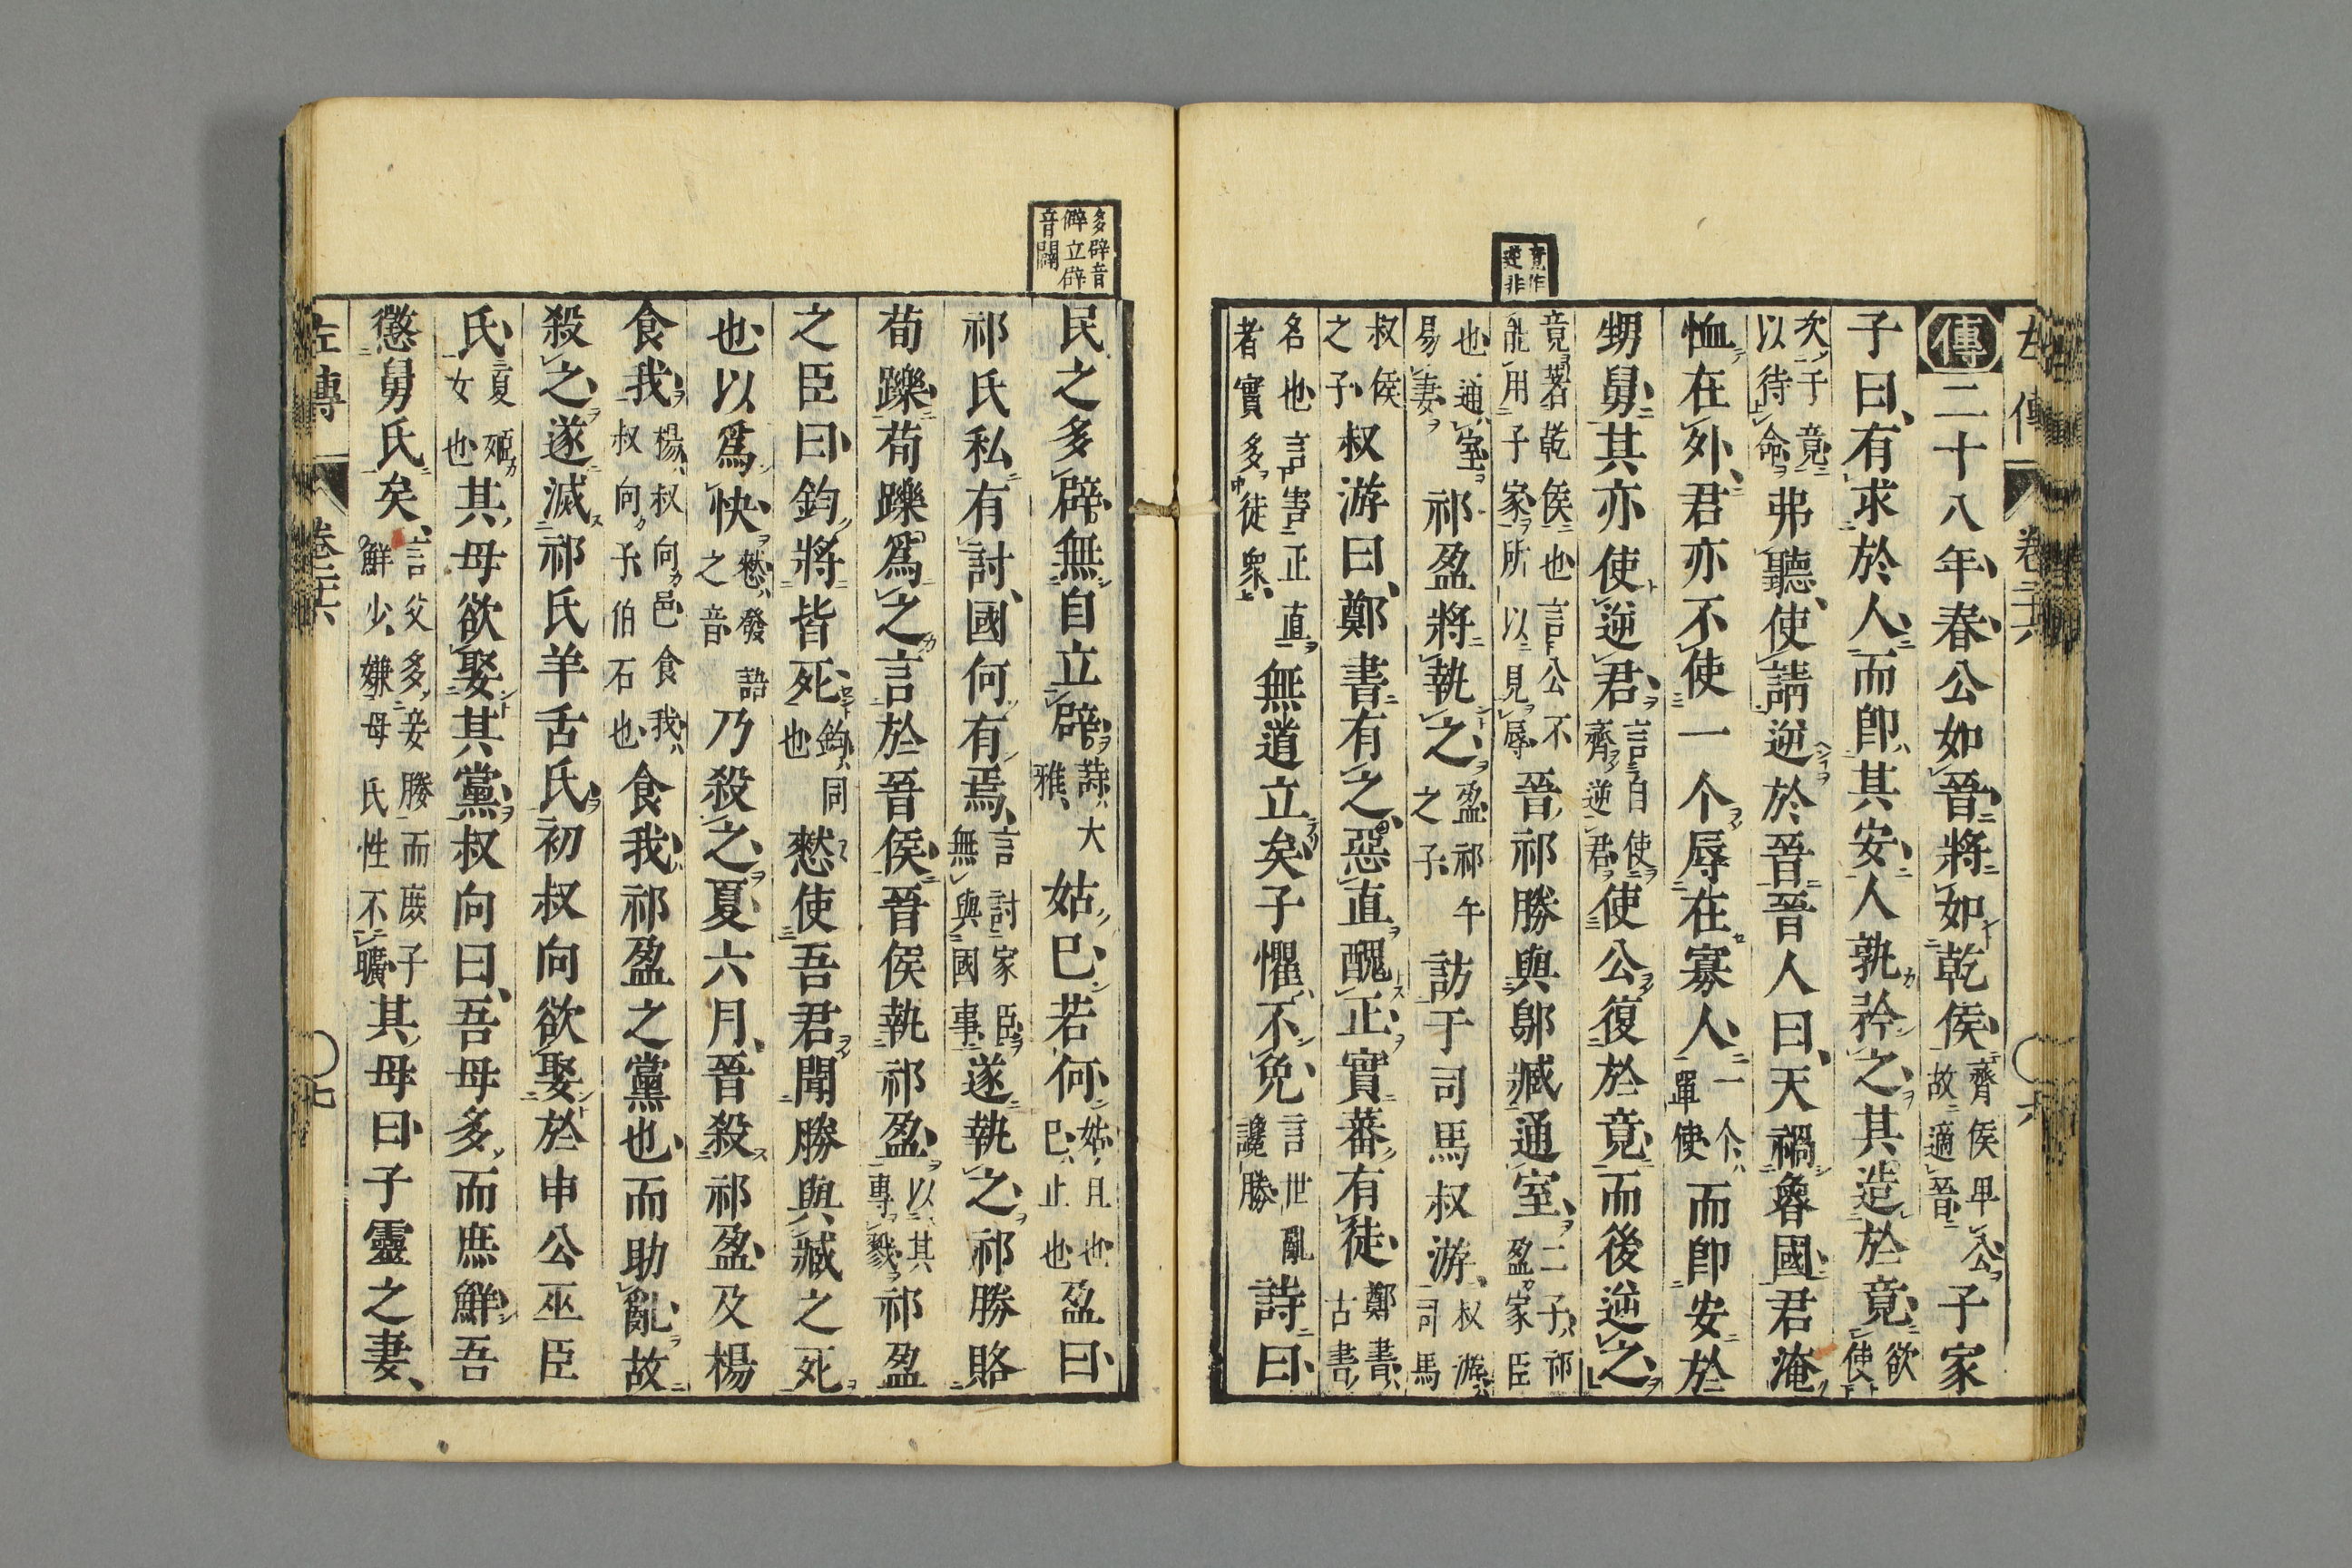 左傳 卷二十六 六
竟作
逆非
傳二十八年春公如晉將如乾侯齊侯卑公故適晉子家
子曰有求於人而卽其安人孰矜之其造於竟欲使
次于竟以待命弗聽使請逆於晉晉人曰天禍魯國君淹
恤在外君亦不使一个辱在寡人一个單使而卽安於
甥舅其亦使逆君言自使齊逆君使公復於竟而後逆之
竟著乾侯也言公不能用子家所以見辱晉祁勝與鄔臧通室二子祁盈家臣
也通室易妻祁盈將執之盈祁午之子訪于司馬叔游叔游司馬
叔侯之子叔游曰鄭書有之惡直醜正實蕃有徒鄭書古書
名也言害正直者實多徒衆無道立矣子懼不免言世亂讒勝詩曰
多辟音
僻立辟
音闢
民之多辟無自立辟詩大雅姑已若何姑且也已止也盈曰
祁氏私有討國何有焉言討家臣無與國事遂執之祁勝賂
荀躒荀躒爲之言於晉侯晉侯執祁盈以其專戮祁盈
之臣曰鈞將皆死鈞同也憖使吾君聞勝與臧之死
也以爲快憖發語之音乃殺之夏六月晉殺祁盈及楊
食我楊叔向邑食我叔向子伯石也食我祁盈之黨也而助亂故
殺之遂滅祁氏羊舌氏初叔向欲娶於申公巫臣
氏夏姬女也其母欲娶其黨叔向曰吾母多而庶鮮吾
懲舅氏矣言父多妾媵而庶子鮮少嫌母氏性不曠其母曰子靈之妻
左傳 卷二十六 七